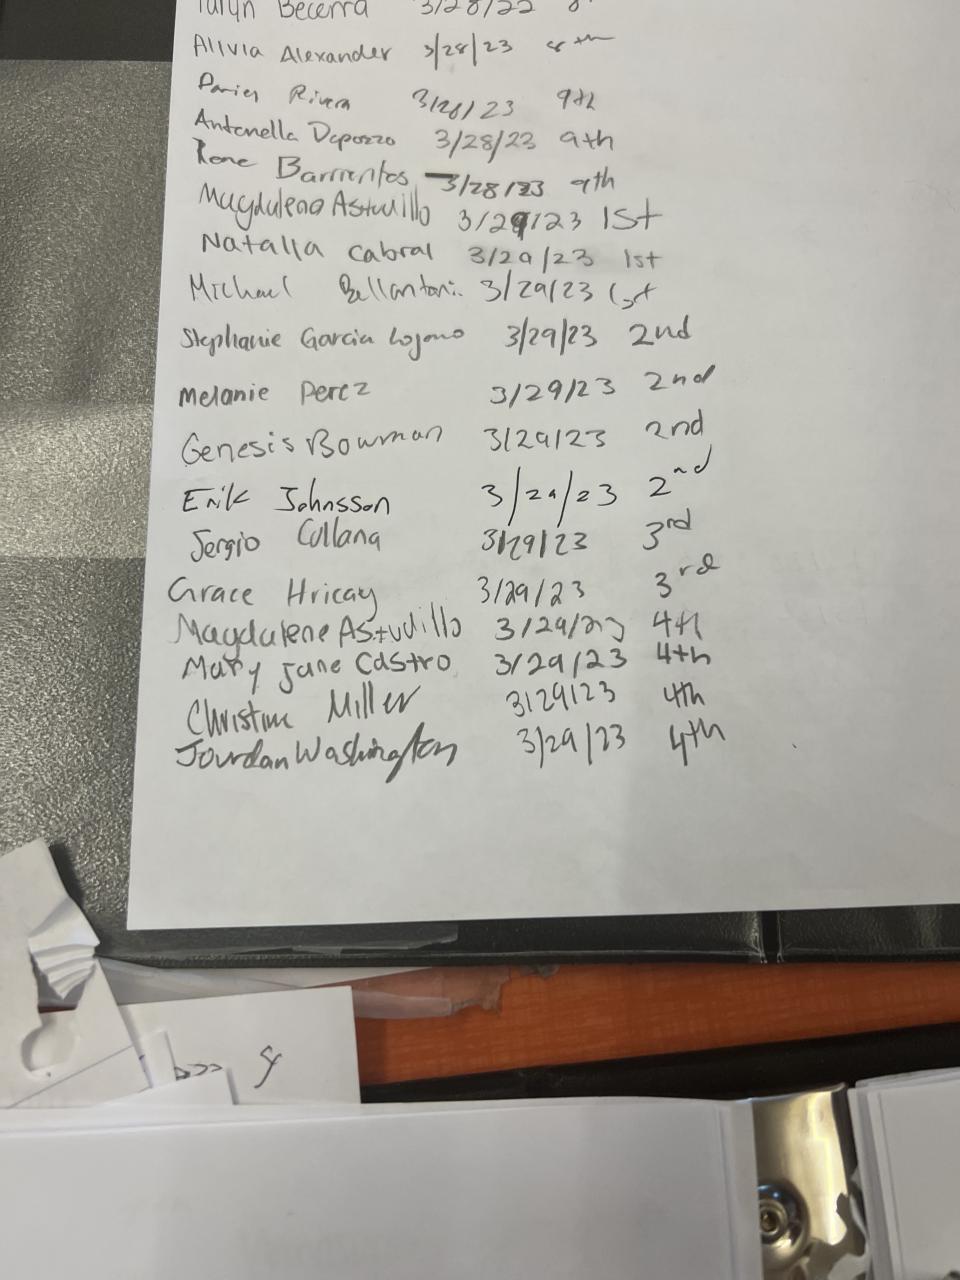 Taryn Becerra 3/28/23
Alivia Alexander 3/28/23 8th
Rivera 3/28/23 9th
Antonella Dapozzo 3/28/23 9th
Rene Barrientos 3/28/23 9th
Magdalena Astudillo 3/29/23 1st
Natalia Cabral 3/29/23 1st
Michael Bellantoni 3/29/23 1st
Stephanie Garcia Lozano 3/29/23 2nd
Melanie Perez 3/29/23 2nd
Genesis Bowman 3/29/23 2nd
Erik Johnsson 3/29/23 2nd
Sergio Collana 3/29/23 3rd
Grace Hricay 3/29/23 3rd
Magdalene Astudillo 3/29/23 4th
Mary Jane Castro 3/29/23 4th
Christine Miller 3/29/23 4th
Jourdan Washington 3/29/23 4th